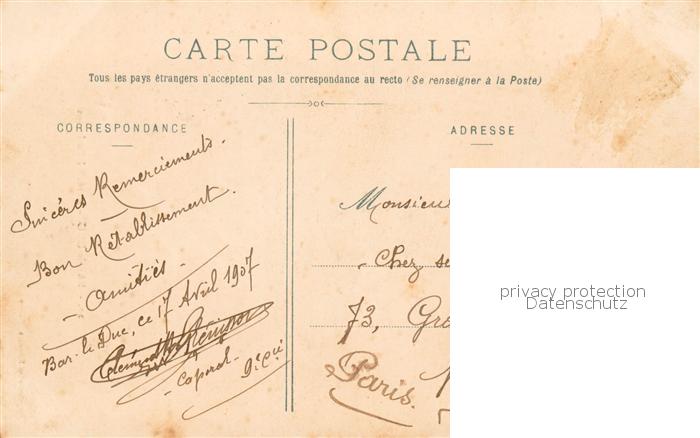 CARTE POSTALE
Tous les pays étrangers n'acceptent pas la correspondance au recto (Se renseigner à la Poste)
CORRESPONDANCE
Sincères Remerciements.
Bon Rétablissement.
- Amitiés -
Bar-le Duc, ce 17 Avril 1907
- Caporal -
9e Cie
ADRESSE
Monsieur
- Chez
73,
Paris.
privacy protection
Datenschutz